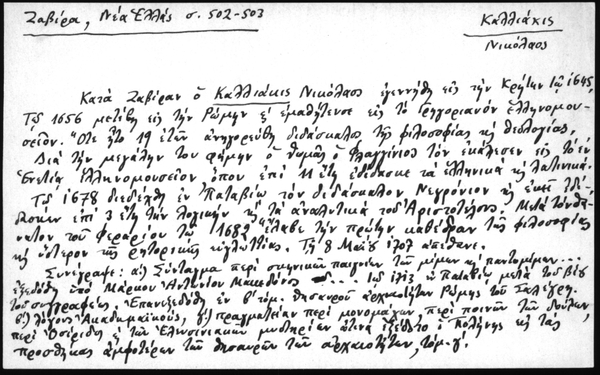 Ζαβίρα, Νέα Ἑλλάς σ. 502-503
Καλλιάκις
Νικόλαος
Κατά Ζαβίραν ὁ Καλλιάκις Νικόλαος ἐγεννήθη εἰς τήν Κρήτην τῷ 1645,
Τῷ 1656 μετέβη εἰς τήν Ρώμην κ' ἐμαθήτευσε εἰς τό Γρηγοριανόν ἑλληνομου-
σεῖον. Ὅτε ἦτο 19 ἐτῶν ἀνηγορεύθη διδάσκαλος τῆς φιλοσοφίας κ' θεολογίας,
Διά τήν μεγάλην του φήμην ὁ Θωμᾶς ὁ Φλαγγίνιος τόν ἐκάλεσεν εἰς τό ἐν
Ἑνετίᾳ ἑλληνομουσεῖον ὅπου ἐπί 11 ἔτη ἐδίδασκε τά ἑλληνικά κ' λατινικά.
Τῷ 1678 διεδέχθη ἐν Παταβίῳ τόν διδάσκαλον Νεγρόνιον κ' ἐκεῖ ἐδί-
δασκεν ἐπί 3 ἔτη τήν λογικήν κ' τά ἀναλυτικά τοῦ Ἀριστοτέλους. Μετά τόν θά-
νατον τοῦ Φεραρίου τῷ 1682 ἔλαβε τήν πρώτην καθέδραν τῆς φιλοσοφίας
κ' ὕστερον τῆς ρητορικῆς εὐγλωττίας. Τῇ 8 Μαΐου 1707 ἀπέθανε.
Συνέγραψε: α') Σύνταγμα περί σκηνικῶν παιγνίων τῶν μίμων κ' παντομίμων...
ἐξεδόθη ὑπό Μάρκου Ἀντωνίου Μαδερῶ ... τῷ 1713 ἐν Παταβίῳ μετά τοῦ βίου
τοῦ συγγραφέως. Ἐπανεξεδόθη ἐν β' τόμ. θησαυροῦ ἀρχαιοτήτων Ρώμης τοῦ Σαλέγγρη.
β') Λόγους Ἀκαδημαϊκούς, γ') πραγματείαν περί μονομάχων, περί ποινῶν τῶν δούλων,
περί Ὀσίριδος κ' τῶν Ἐλευσινιακῶν μυστηρίων ἅτινα ἐξέδοτο ὁ Πολένης εἰς τάς
προσθήκας ἀμφοτέρων τῶν θησαυρῶν τῶν ἀρχαιοτήτων, τόμ. γ'.